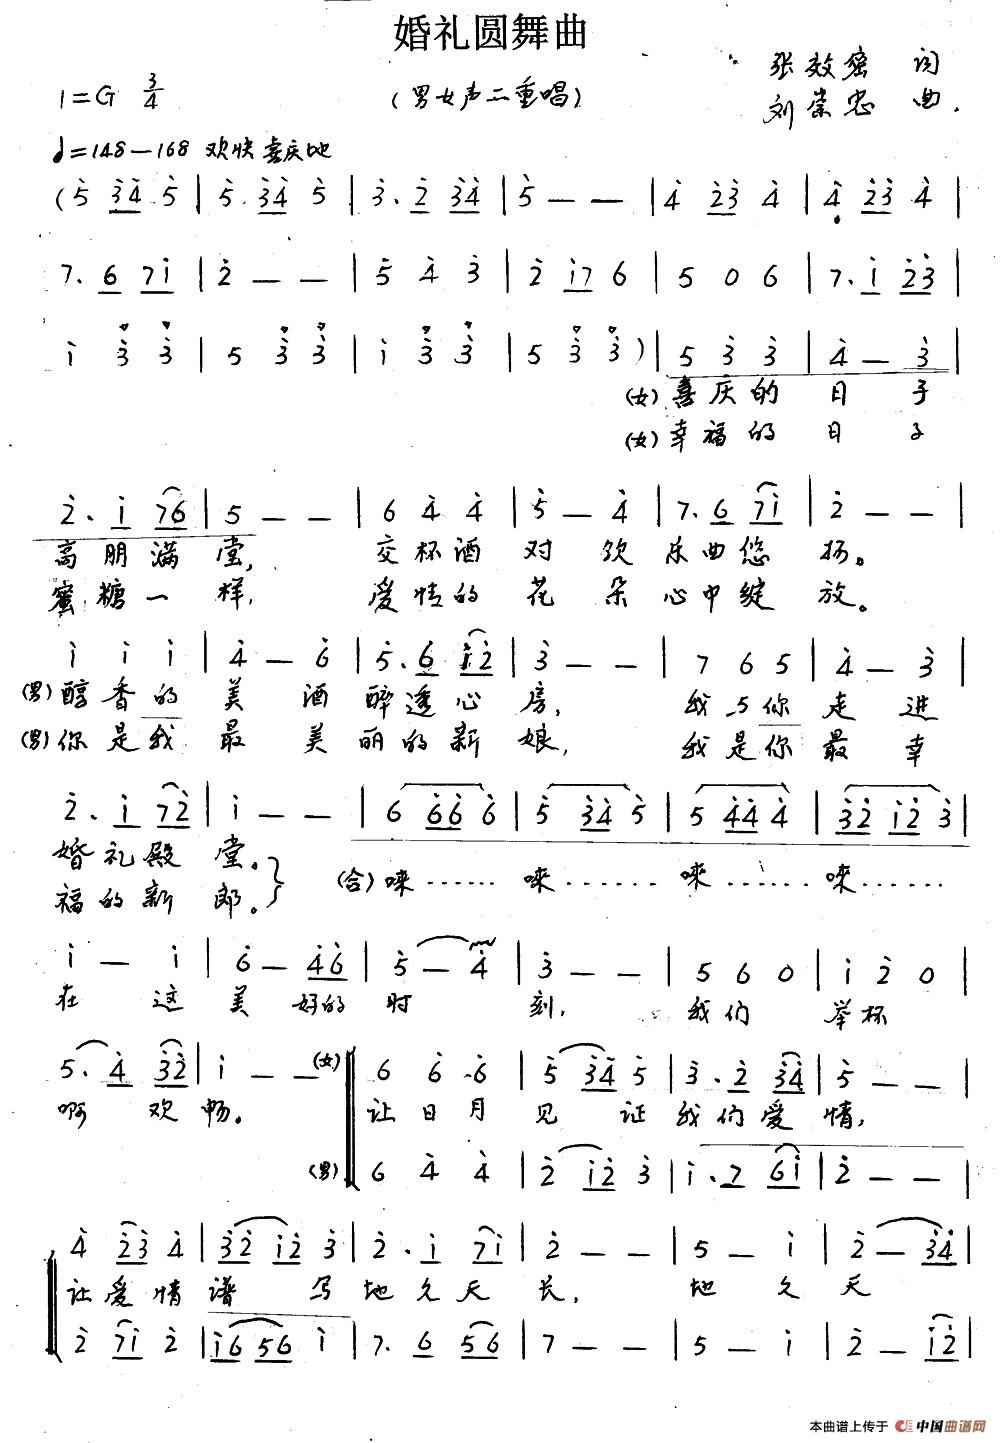 婚礼圆舞曲
1=G 3/4 (男女声二重唱) 张效密 词
刘崇忠 曲.
♩=148—168 欢快喜庆地
(5 34 5 | 5. 34 5 | 3. 2 34 | 5 — — | 4 23 4 | 4 23 4 |
7. 6 71 | 2 — — | 5 4 3 | 2 17 6 | 5 0 6 | 7. 1 23 |
1 3 3 | 5 3 3 | 1 3 3 | 5 3 3 ) | 5 3 3 | 4 — 3 |
(女) 喜庆的 日 子
(女) 幸福的 日 子
2. 1 76 | 5 — — | 6 4 4 | 5 — 4 | 7. 6 71 | 2 — —
高朋满堂, 交杯酒对饮 乐曲悠扬。
蜜糖一样, 爱情的花朵心中绽放。
1 1 1 | 4 — 6 | 5. 6 12 | 3 — — | 7 6 5 | 4 — 3 |
(男) 醇香的美酒醉透心房, 我与你走进
(男) 你是我最美丽的新娘, 我是你最幸
2. 1 72 | 1 — — | 6 66 6 | 5 34 5 | 5 44 4 | 32 12 3 |
婚礼殿堂。
福的新郎。 (合) 唻…… 唻…… 唻…… 唻……
1 — 1 | 6 — 46 | 5 — 4 | 3 — — | 5 6 0 | 1 2 0 |
在这美好的时刻, 我们举杯
5. 4 32 | 1 — — (女) 6 6 6 | 5 34 5 | 3. 2 34 | 5 — — |
啊欢畅。 让日月见证我们爱情,
(男) 6 4 4 | 2 12 3 | 1. 7 61 | 2 — — |
4 23 4 | 32 12 3 | 2. 1 71 | 2 — — | 5 — 1 | 2 — 34 |
让爱情谱写地久天长, 地久天
2 71 2 | 16 56 1 | 7. 6 56 | 7 — — | 5 — 1 | 2 — 12 |
本曲谱上传于 中国曲谱网